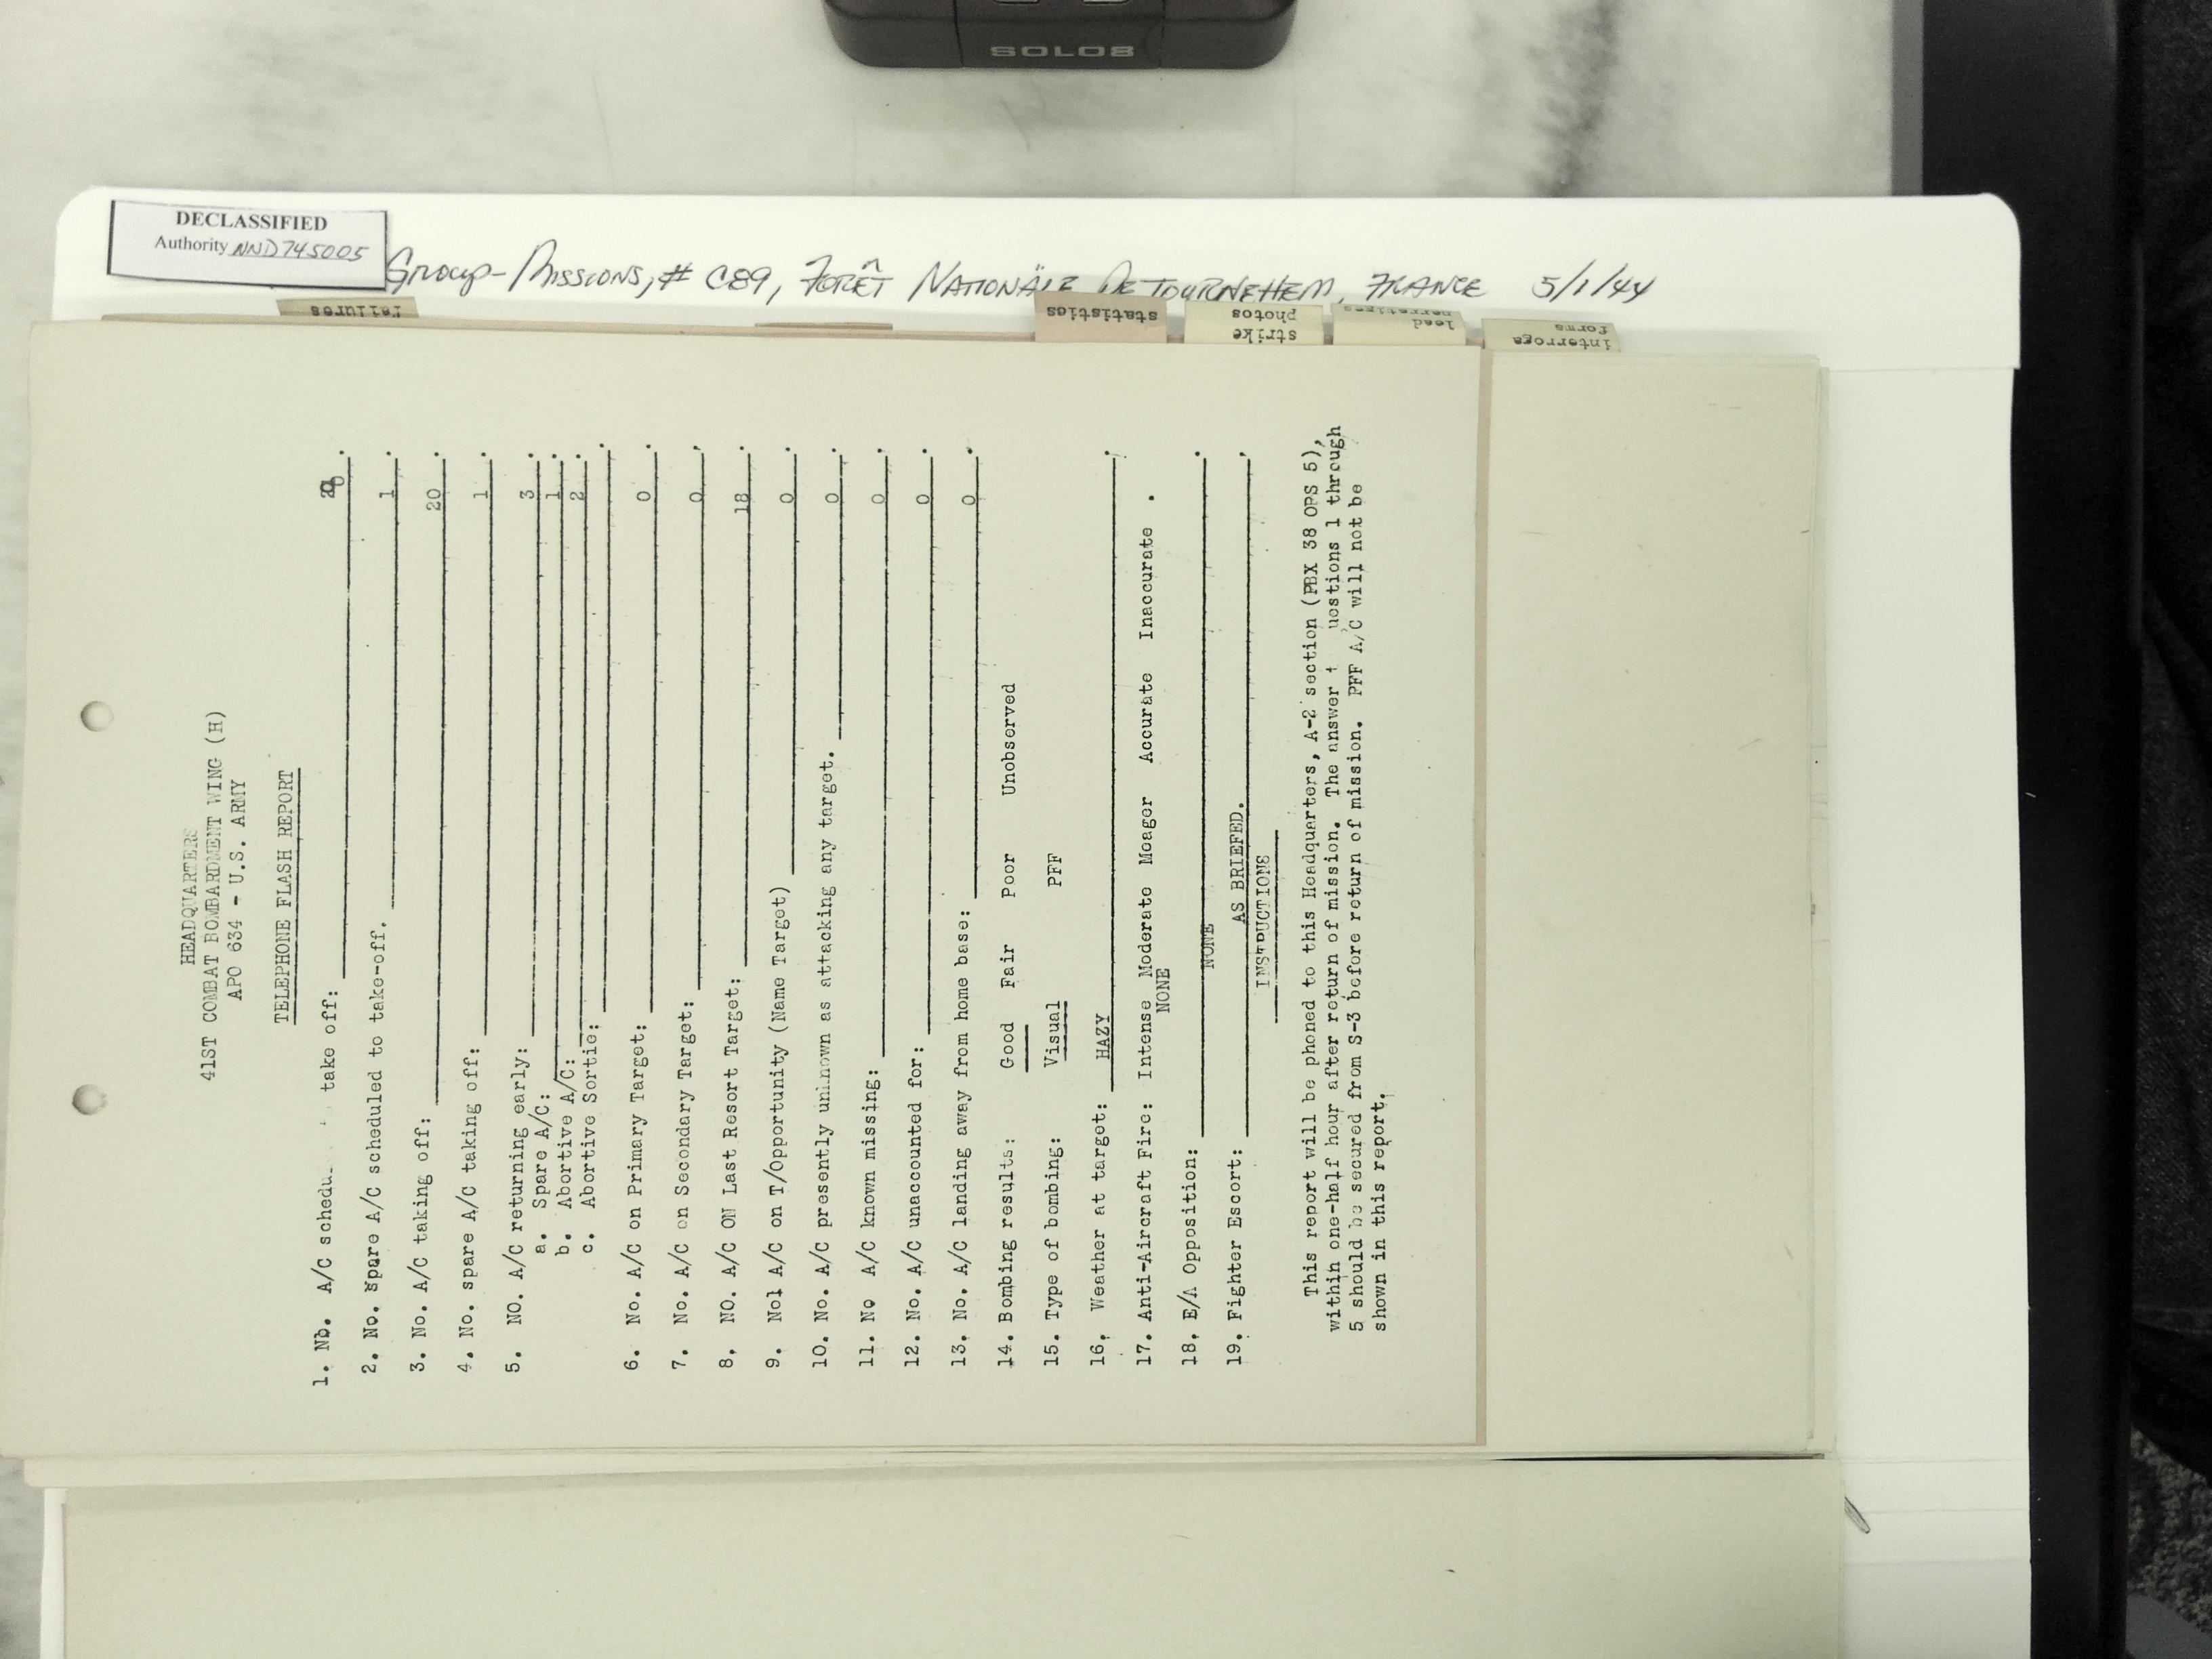 SOLO8
DECLASSIFIED
Authority NND745005
Group-Missions, # C89, Forêt Nationale De Tournehem, France 5/1/44
failures
statistics
strike
photos
lead
narratives
interroga
forms
HEADQUARTERS
41ST COMBAT BOMBARDMENT WING (H)
APO 634 - U.S. ARMY
TELEPHONE FLASH REPORT
1. No. A/C schedu take off: .
2. No. spare A/C scheduled to take-off. 1 .
3. No. A/C taking off: 20 .
4. No. spare A/C taking off: 1 .
5. NO. A/C returning early: 3 .
a. Spare A/C: 1 .
b. Abortive A/C: 2 .
c. Abortive Sortie: .
6. No. A/C on Primary Target: 0 .
7. No. A/C on Secondary Target: 0 .
8. NO. A/C ON Last Resort Target: 18 .
9. Nol A/C on T/Opportunity (Name Target) 0 .
10. No. A/C presently unknown as attacking any target. 0 .
11. No A/C known missing: 0 .
12. No. A/C unaccounted for: 0 .
13. No. A/C landing away from home base: 0 .
14. Bombing results: Good Fair Poor Unobserved
15. Type of bombing: Visual PFF
16. Weather at target: HAZY .
17. Anti-Aircraft Fire: Intense Moderate Meager Accurate Inaccurate .
NONE
18. E/A Opposition: NONE .
19. Fighter Escort: AS BRIEFED. .
INSTRUCTIONS
This report will be phoned to this Headquarters, A-2 section (PBX 38 OPS 5),
within one-half hour after return of mission. The answer t uestions 1 through
5 should be secured from S-3 before return of mission. PFF A/C will not be
shown in this report.